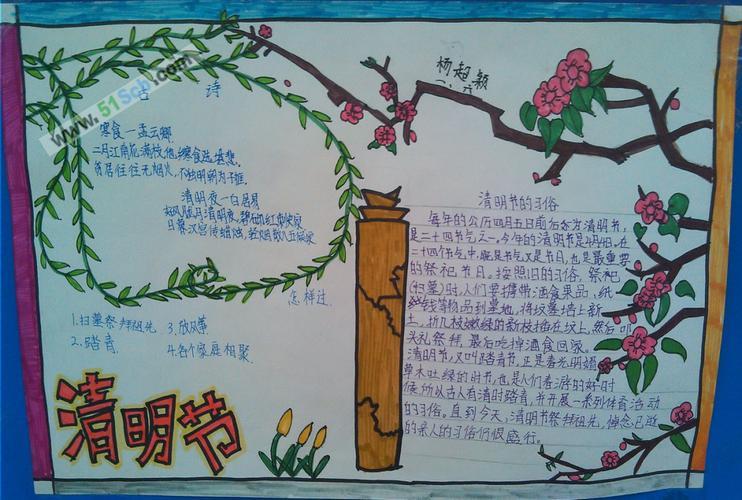 www.51Scb.com
古 诗
寒食一孟云卿
二月江南花满枝,他乡寒食远堪悲。
贫居往往无烟火,不独明朝为子推
清明夜一白居易
好风胧月清明夜,碧砌红轩
日暮汉宫传蜡烛,轻烟散入五侯家
怎样过
1.扫墓祭拜祖先 3.放风筝
2.踏青 4.各个家庭相聚
清明节
杨超颖
一、六
清明节的习俗
每年的公历四月五日前后为清明节,
是二十四节气之一。今年的清明节是4月4日。在
二十四个节气中,既是节气又是节日,也是最重要
的祭祀节日。按照旧的习俗,祭祀
(扫墓)时,人们要携带酒食果品,纸
钱等物品到墓地,将坟墓培上新
土,折几枝嫩绿的新枝插在坟上,然后叩
头礼祭拜,最后吃掉酒食回家。
清明节,又叫踏青节,正是春光明媚
草木吐绿的时节,也是人们春游的好时
候,所以古人有清明踏青,并开展一系列体育活动
的习俗。直到今天,清明节祭拜祖先,悼念已逝
的亲人的习俗仍很盛行。